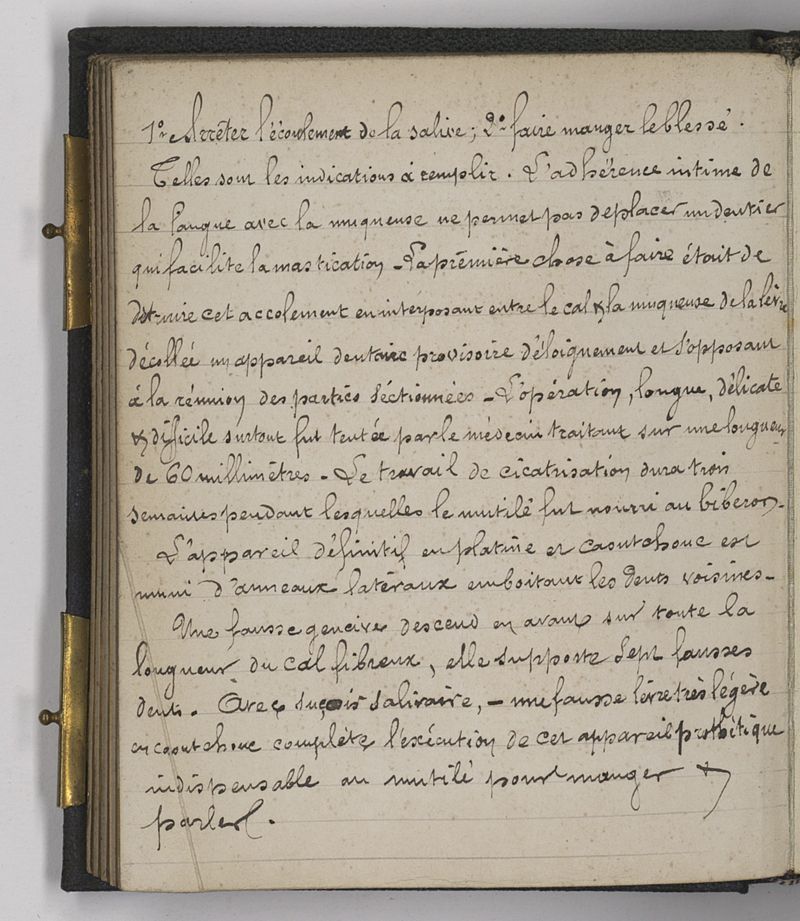 1º Arrêter l'écoulement de la salive; 2º faire manger le blessé.
Telles sont les indications à remplir. L'adhérence intime de
la langue avec la muqueuse ne permet pas de placer un dentier
qui facilite la mastication - La première chose à faire était de
détruire cet accolement en interposant entre le cal & la muqueuse de la lèvre
décollée un appareil dentaire provisoire d'éloignement et s'opposant
à la réunion des parties sectionnées - L'opération, longue, délicate
& difficile surtout fut tentée par le médecin traitant sur une longueur
de 60 millimètres - Le travail de cicatrisation dura trois
semaines pendant lesquelles le mutilé fut nourri au biberon.
L'appareil définitif en platine et caoutchouc est
muni d'anneaux latéraux emboitant les dents voisines -
Une fausse gencive descend en avant sur toute la
longueur du cal fibreux, elle supporte sept fausses
dents. Avec salivaire, - une fausse lèvre très légère
en caoutchouc complète l'exécution de cet appareil prothétique
indispensable au mutilé pour manger &
parler.